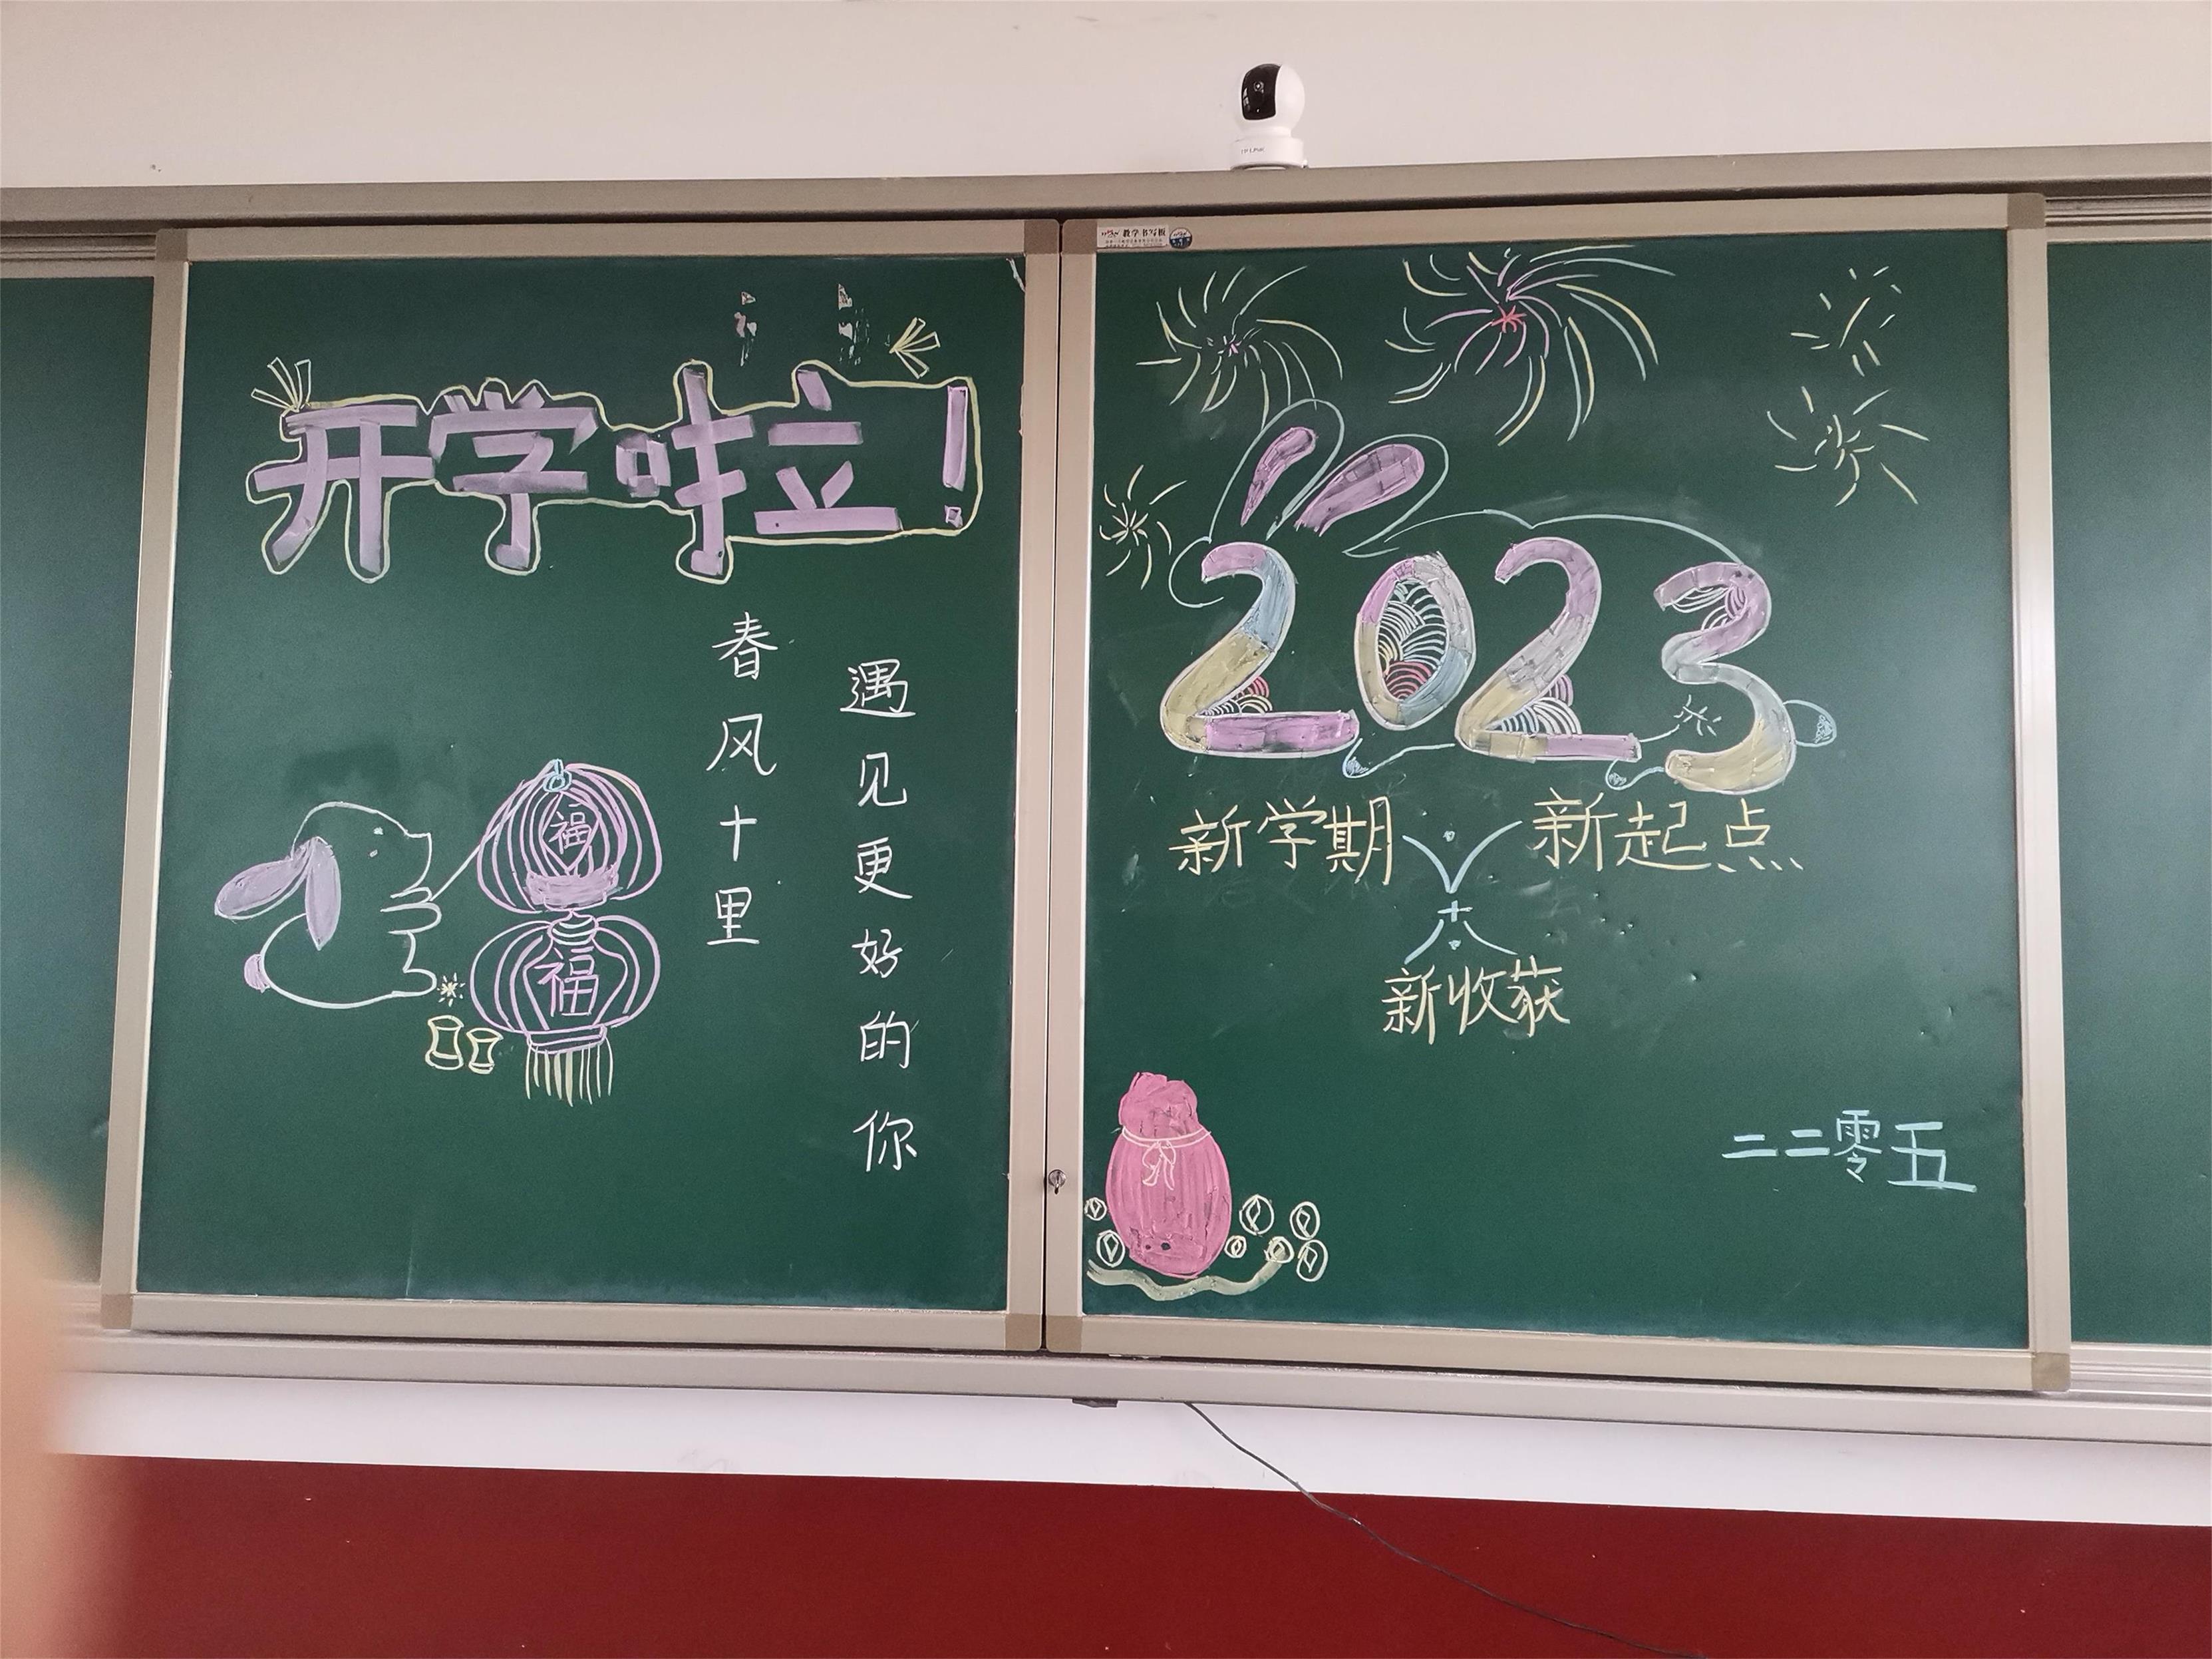 开学啦!
春风十里
遇见更好的你
福
福
教学书写板
2023
新学期
新起点
新收获
二二零五